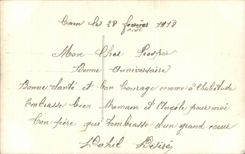 le 28 1918
Mon Cher Prosper
Bonne Anniversaire
Bonne Santé et bon Courage comme à l'habitude
Embrasse bien Maman et pour moi
Ton frère qui t'embrasse d'un grand coeur
Désiré